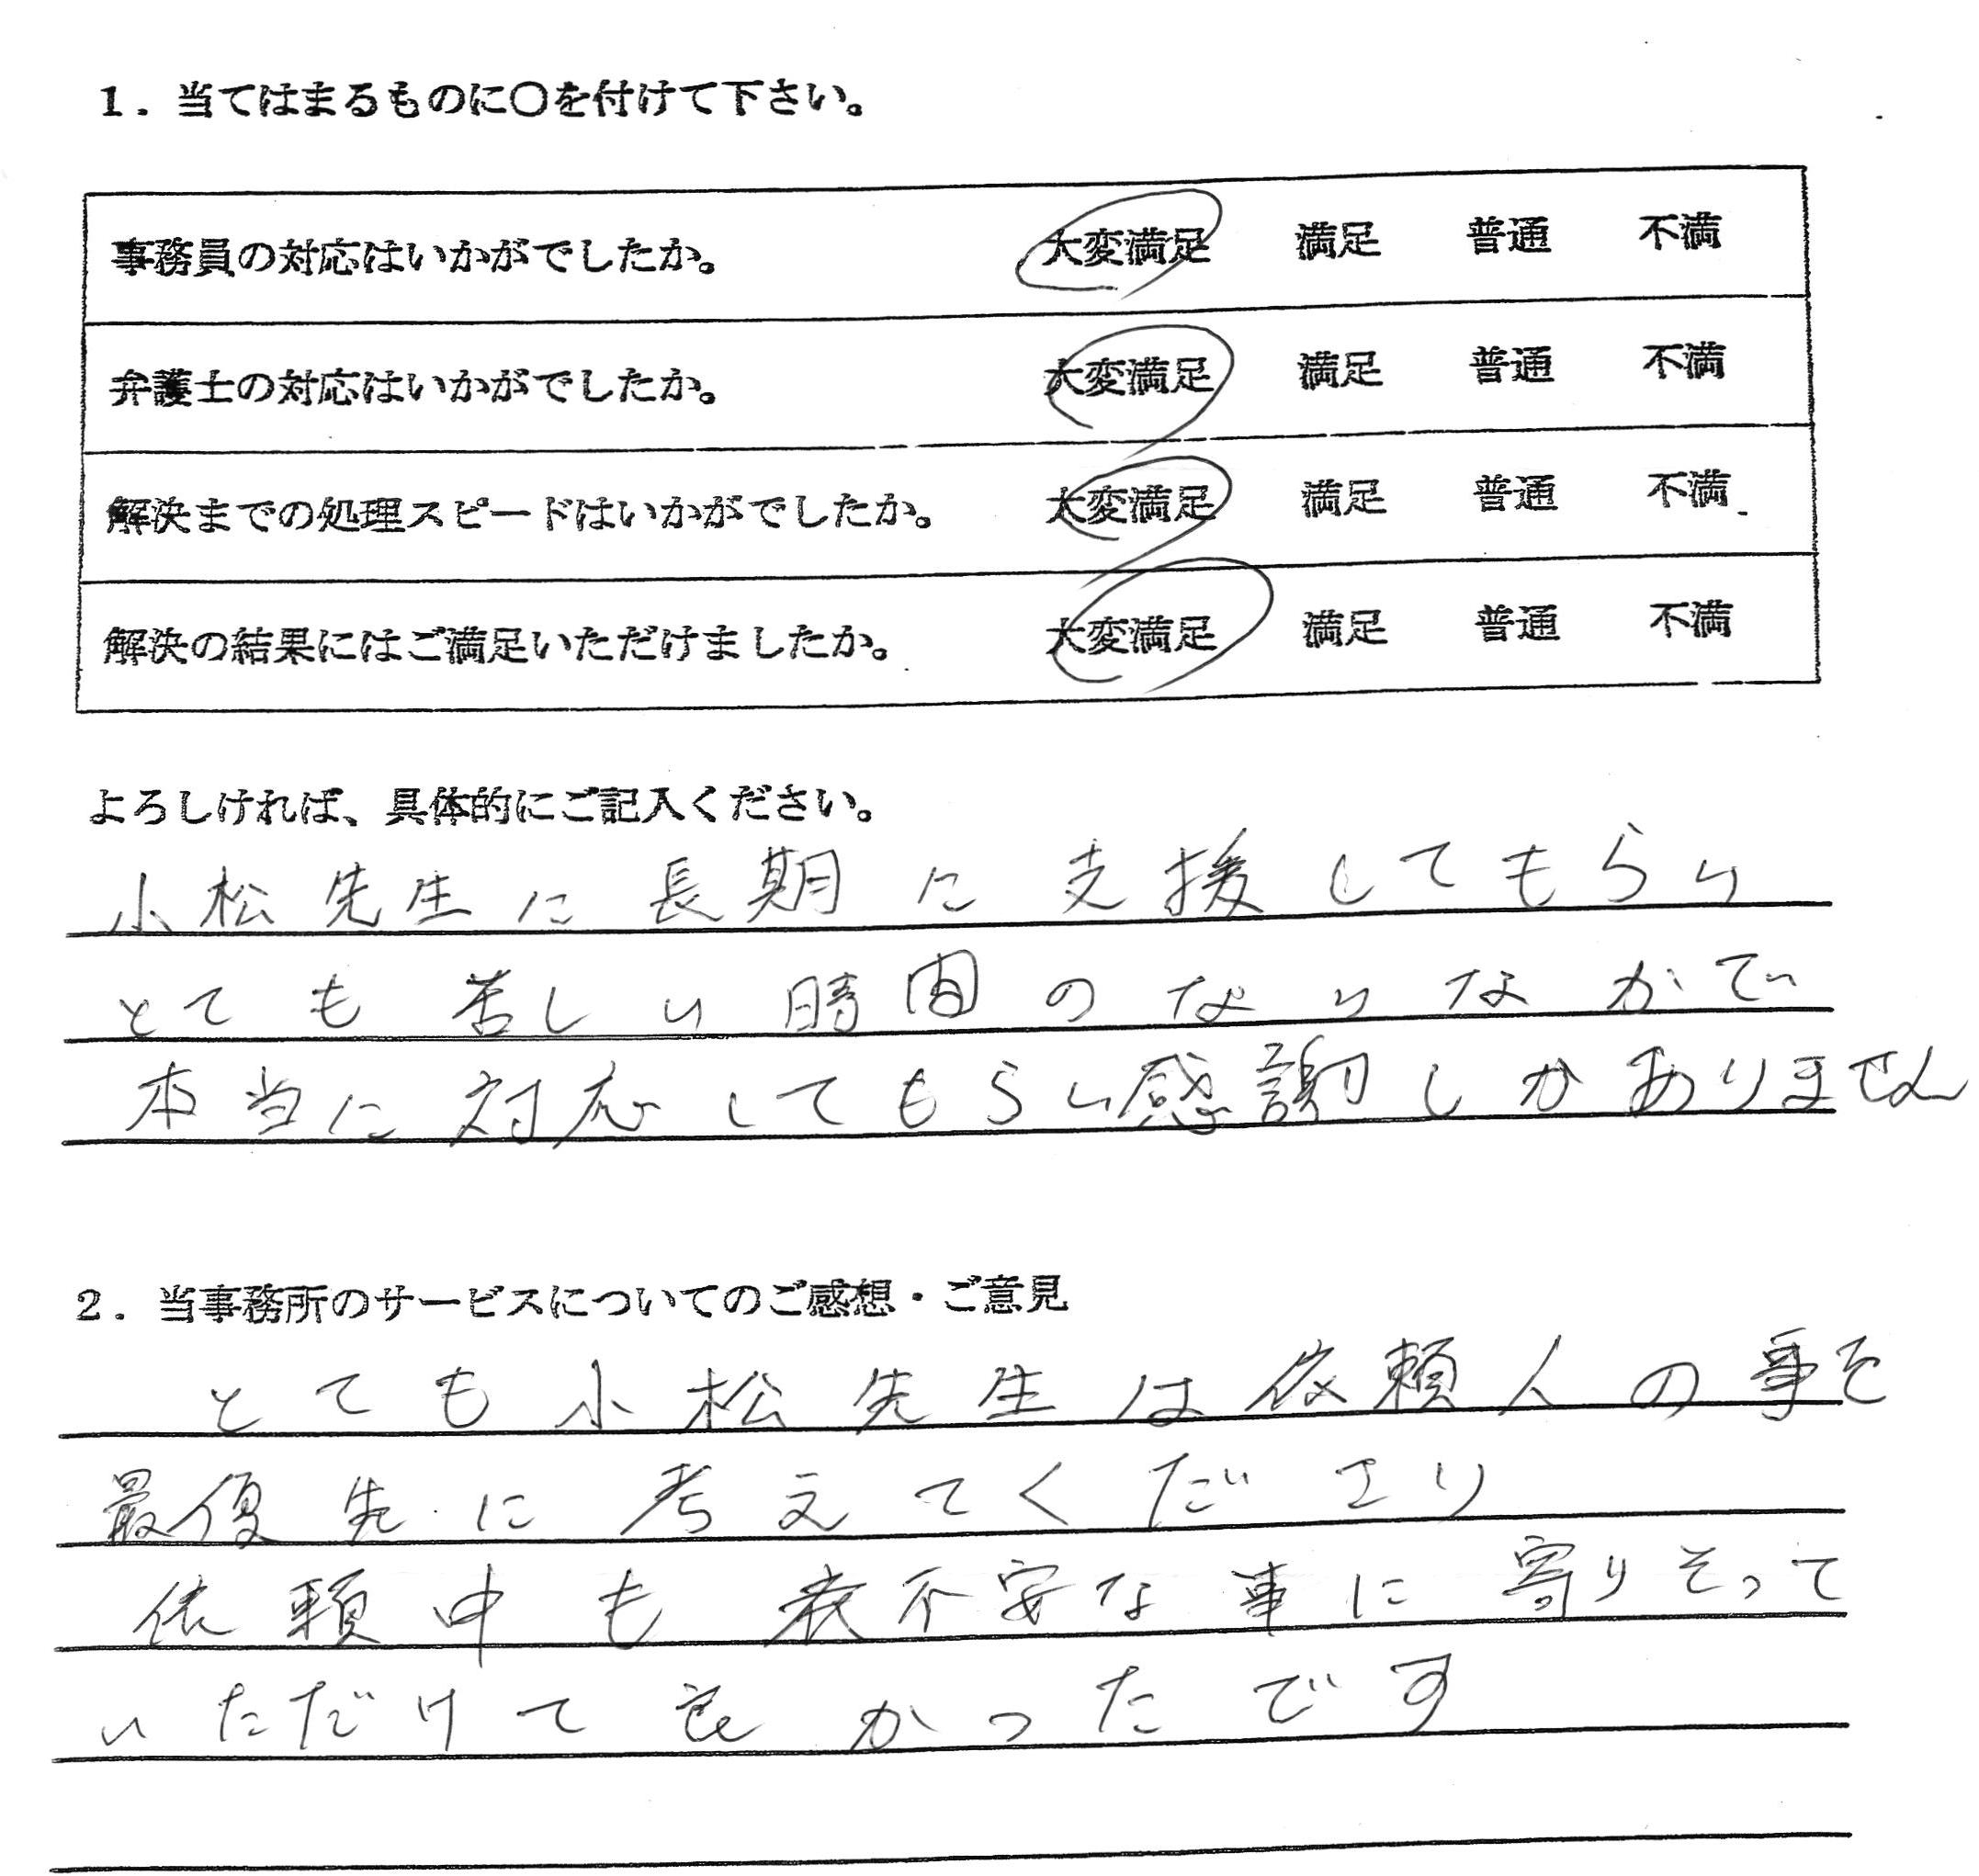 1．当てはまるものに〇を付けて下さい。
事務員の対応はいかがでしたか。 大変満足 満足 普通 不満
弁護士の対応はいかがでしたか。 大変満足 満足 普通 不満
解決までの処理スピードはいかがでしたか。 大変満足 満足 普通 不満
解決の結果にはご満足いただけましたか。 大変満足 満足 普通 不満
よろしければ、具体的にご記入ください。
小松先生に長期に支援してもらい
とても苦しい時間のないなかで
本当に対応してもらい感謝しかありません
2．当事務所のサービスについてのご感想・ご意見
とても小松先生は依頼人の事を
最優先に考えてくださり
依頼中も 不安な事に寄りそって
いただけて良かったです